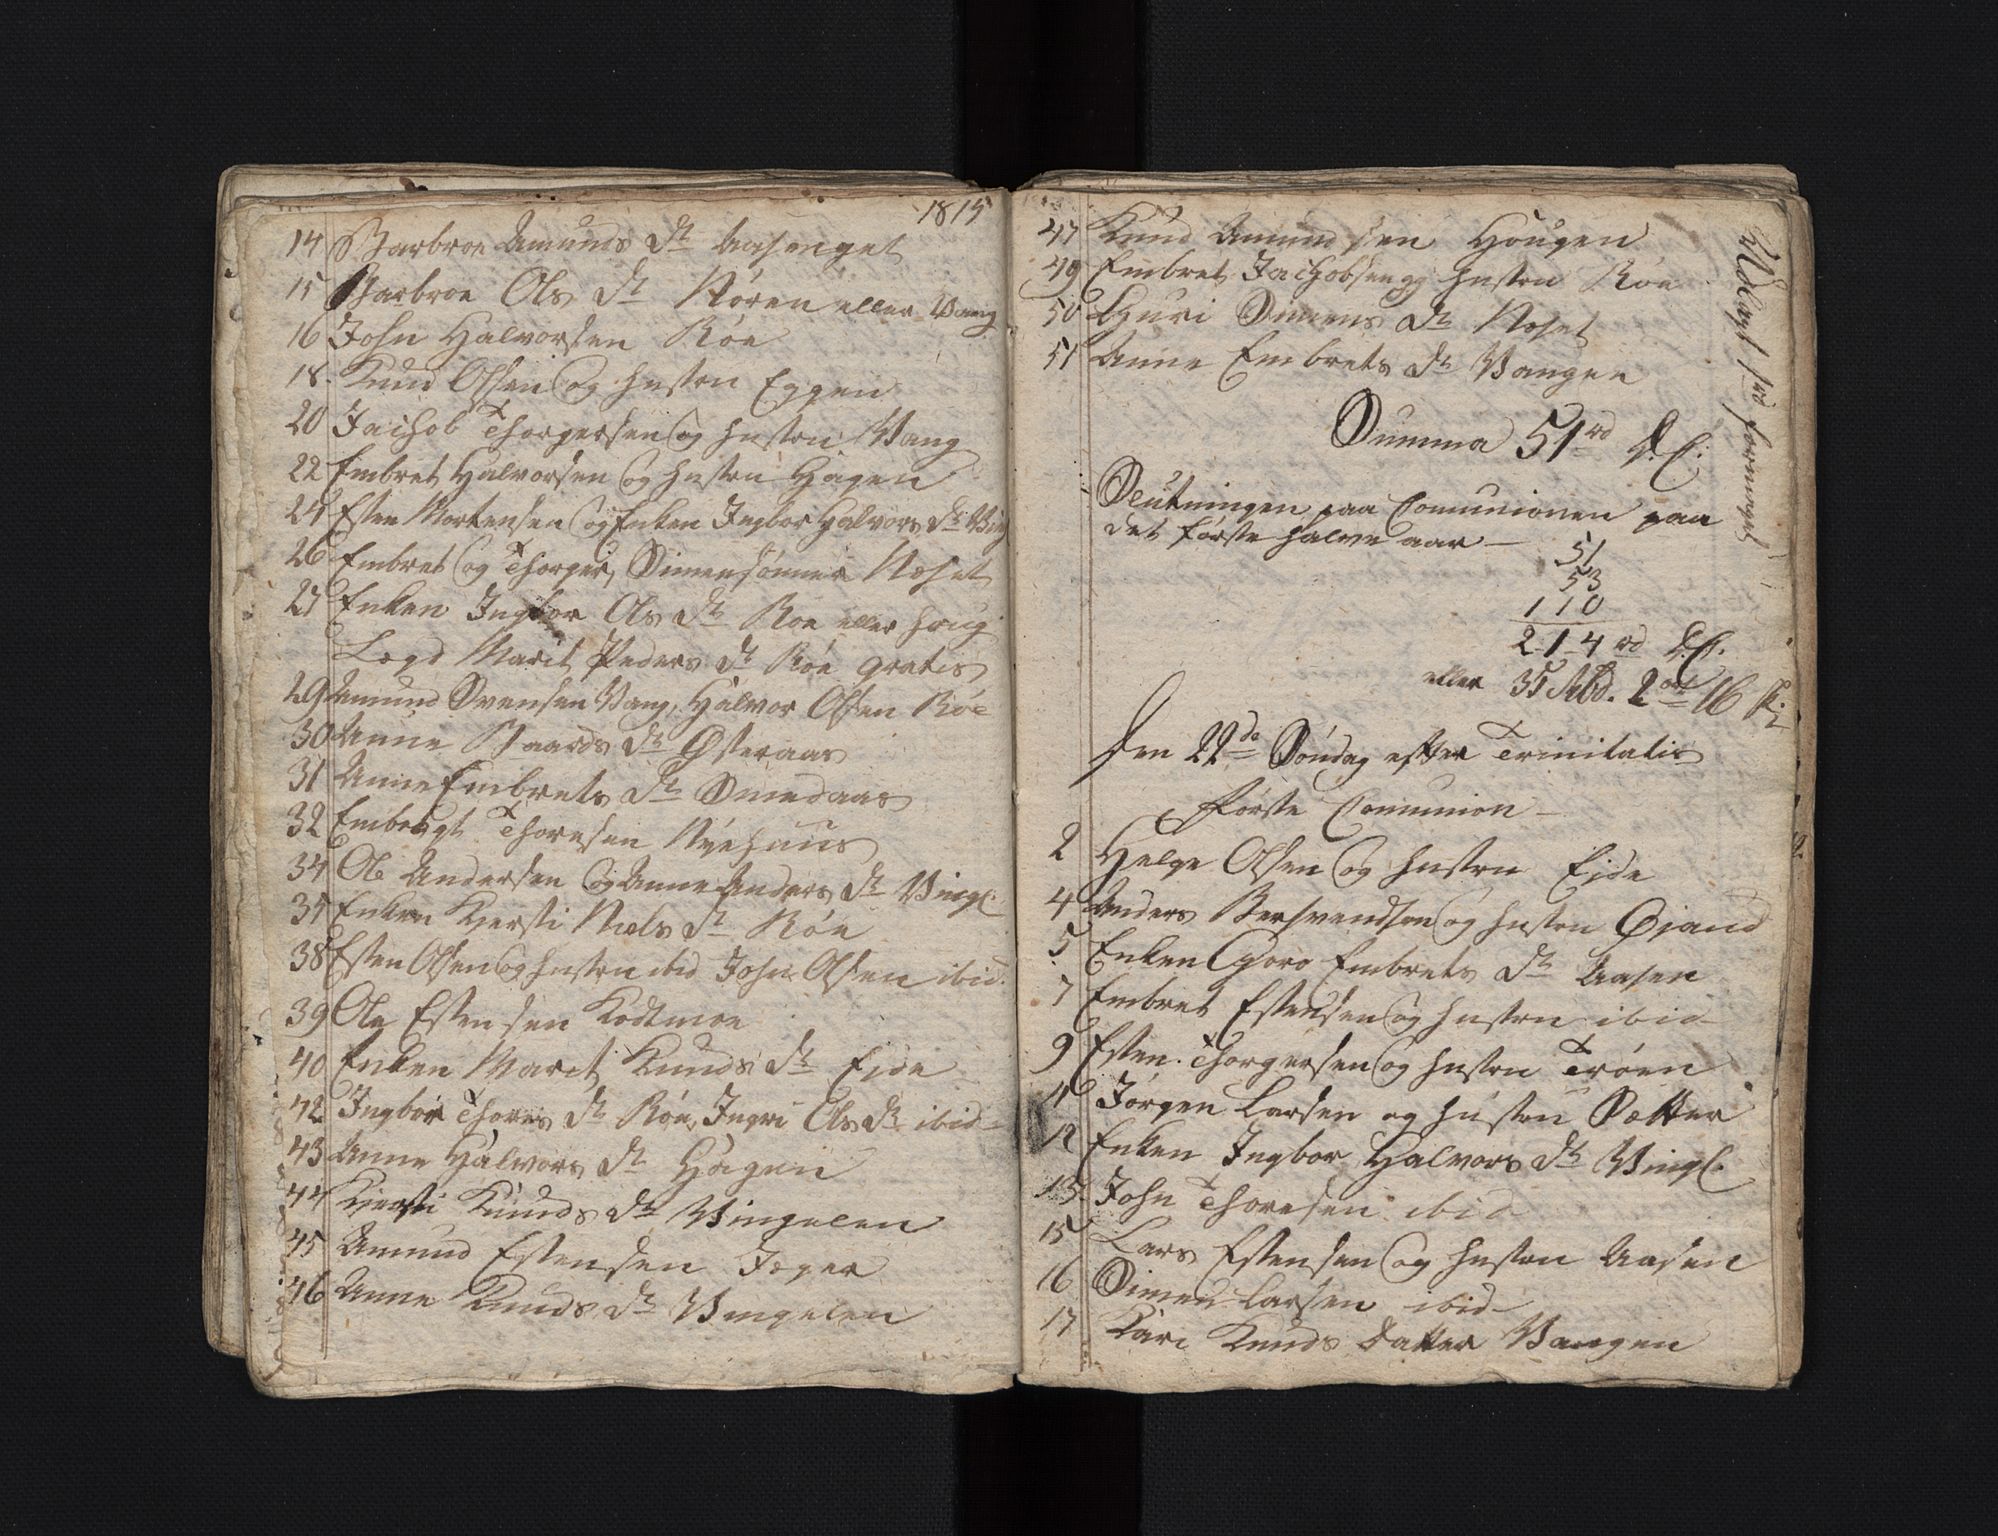 1815
14 Barbroe Amunds Dtr Aasenget
15 Barbroe Ols Dtr Nören eller Vang
16 John Halvorsen Röe
18. Knud Olsen og hustru Eggen
20 Jachob Thorgersen og hustru Vang
22 Embret Halvorsen og hustru Hagen
24 Esten Mortensen og Enken Ingbor Halvors Dtr
26 Embret og Thorger Simensönner Næset
27 Enken Ingbor Ols Dtr Röe eller Houg
Legd Marit Peders Dtr Röe gratis
29 Amund Svensen Vang, Halvor Olsen Röe
30 Anne Baards Dtr Østeraas
31 Anne Embrets Dtr Smedaas
32 Embregt Thoresen Nyehuus
34 Ole Andersen og Anne Anders Dtr Vingl.
35 Enken Kjersti Niels Dtr Röe
38 Esten Olsen og hustru ibid John Olsen ibid.
39 Ole Estensen Kodtmoe
40 Enken Marit Knuds Dtr Eide
42 Ingbor Thores Dtr Röe, Ingri Ols Dtr ibid
43 Anne Halvors Dtr Hagen
44 Kjersti Knuds Dtr Vingelen
45 Amund Estensen Jæger
46 Anne Knuds Dtr Vingelen
47 Knud Amundsen Hougen
49 Embret Jachobsen og hustru Röe
50 Guri Simens Dtr Næset
51 Anne Embrets Dtr Vangen
Summa 51
Slutningen paa Comunionen paa
det förste halve aar
51
53
110
214
eller 35 Rbd. 2 ort 16 sk.
Den 22de Söndag efter Trinitatis
Förste Comunion
2 Helge Olsen og hustru Eide
4 Anders Bersvendsen og hustru Øiand
5 Enken Goro Embrets Dtr Aasen
7 Embret Estensen og hustru ibid
9 Esten Thorgersen og hustru Tröen
11 Jörgen Larsen og hustru Sætter
12 Enken Ingbor Halvors Dtr Vingl.
13. John Thoresen ibid
15 Lars Estensen og hustru Aasen
16 Simen Larsen ibid
17 Kari Knuds Datter Vangen